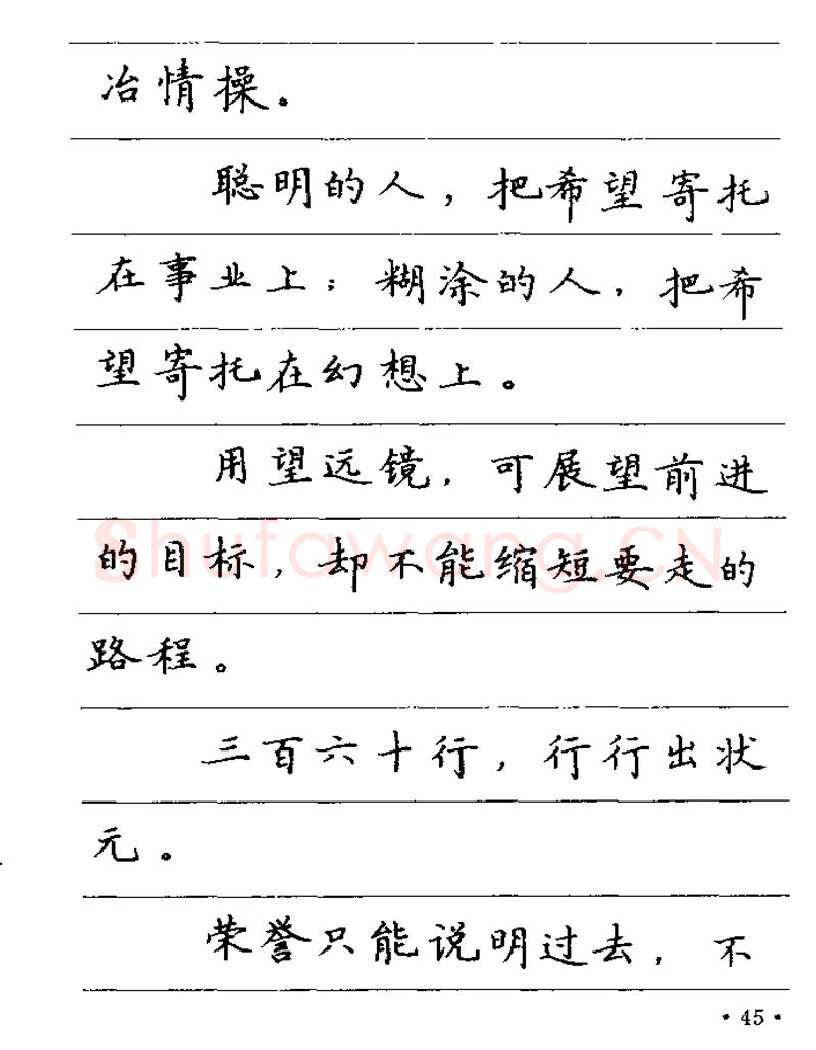 冶情操。
聪明的人，把希望寄托
在事业上；糊涂的人，把希
望寄托在幻想上。
用望远镜，可展望前进
的目标，却不能缩短要走的
路程。
三百六十行，行行出状
元。
荣誉只能说明过去，不
·45·
Shufawang.CN